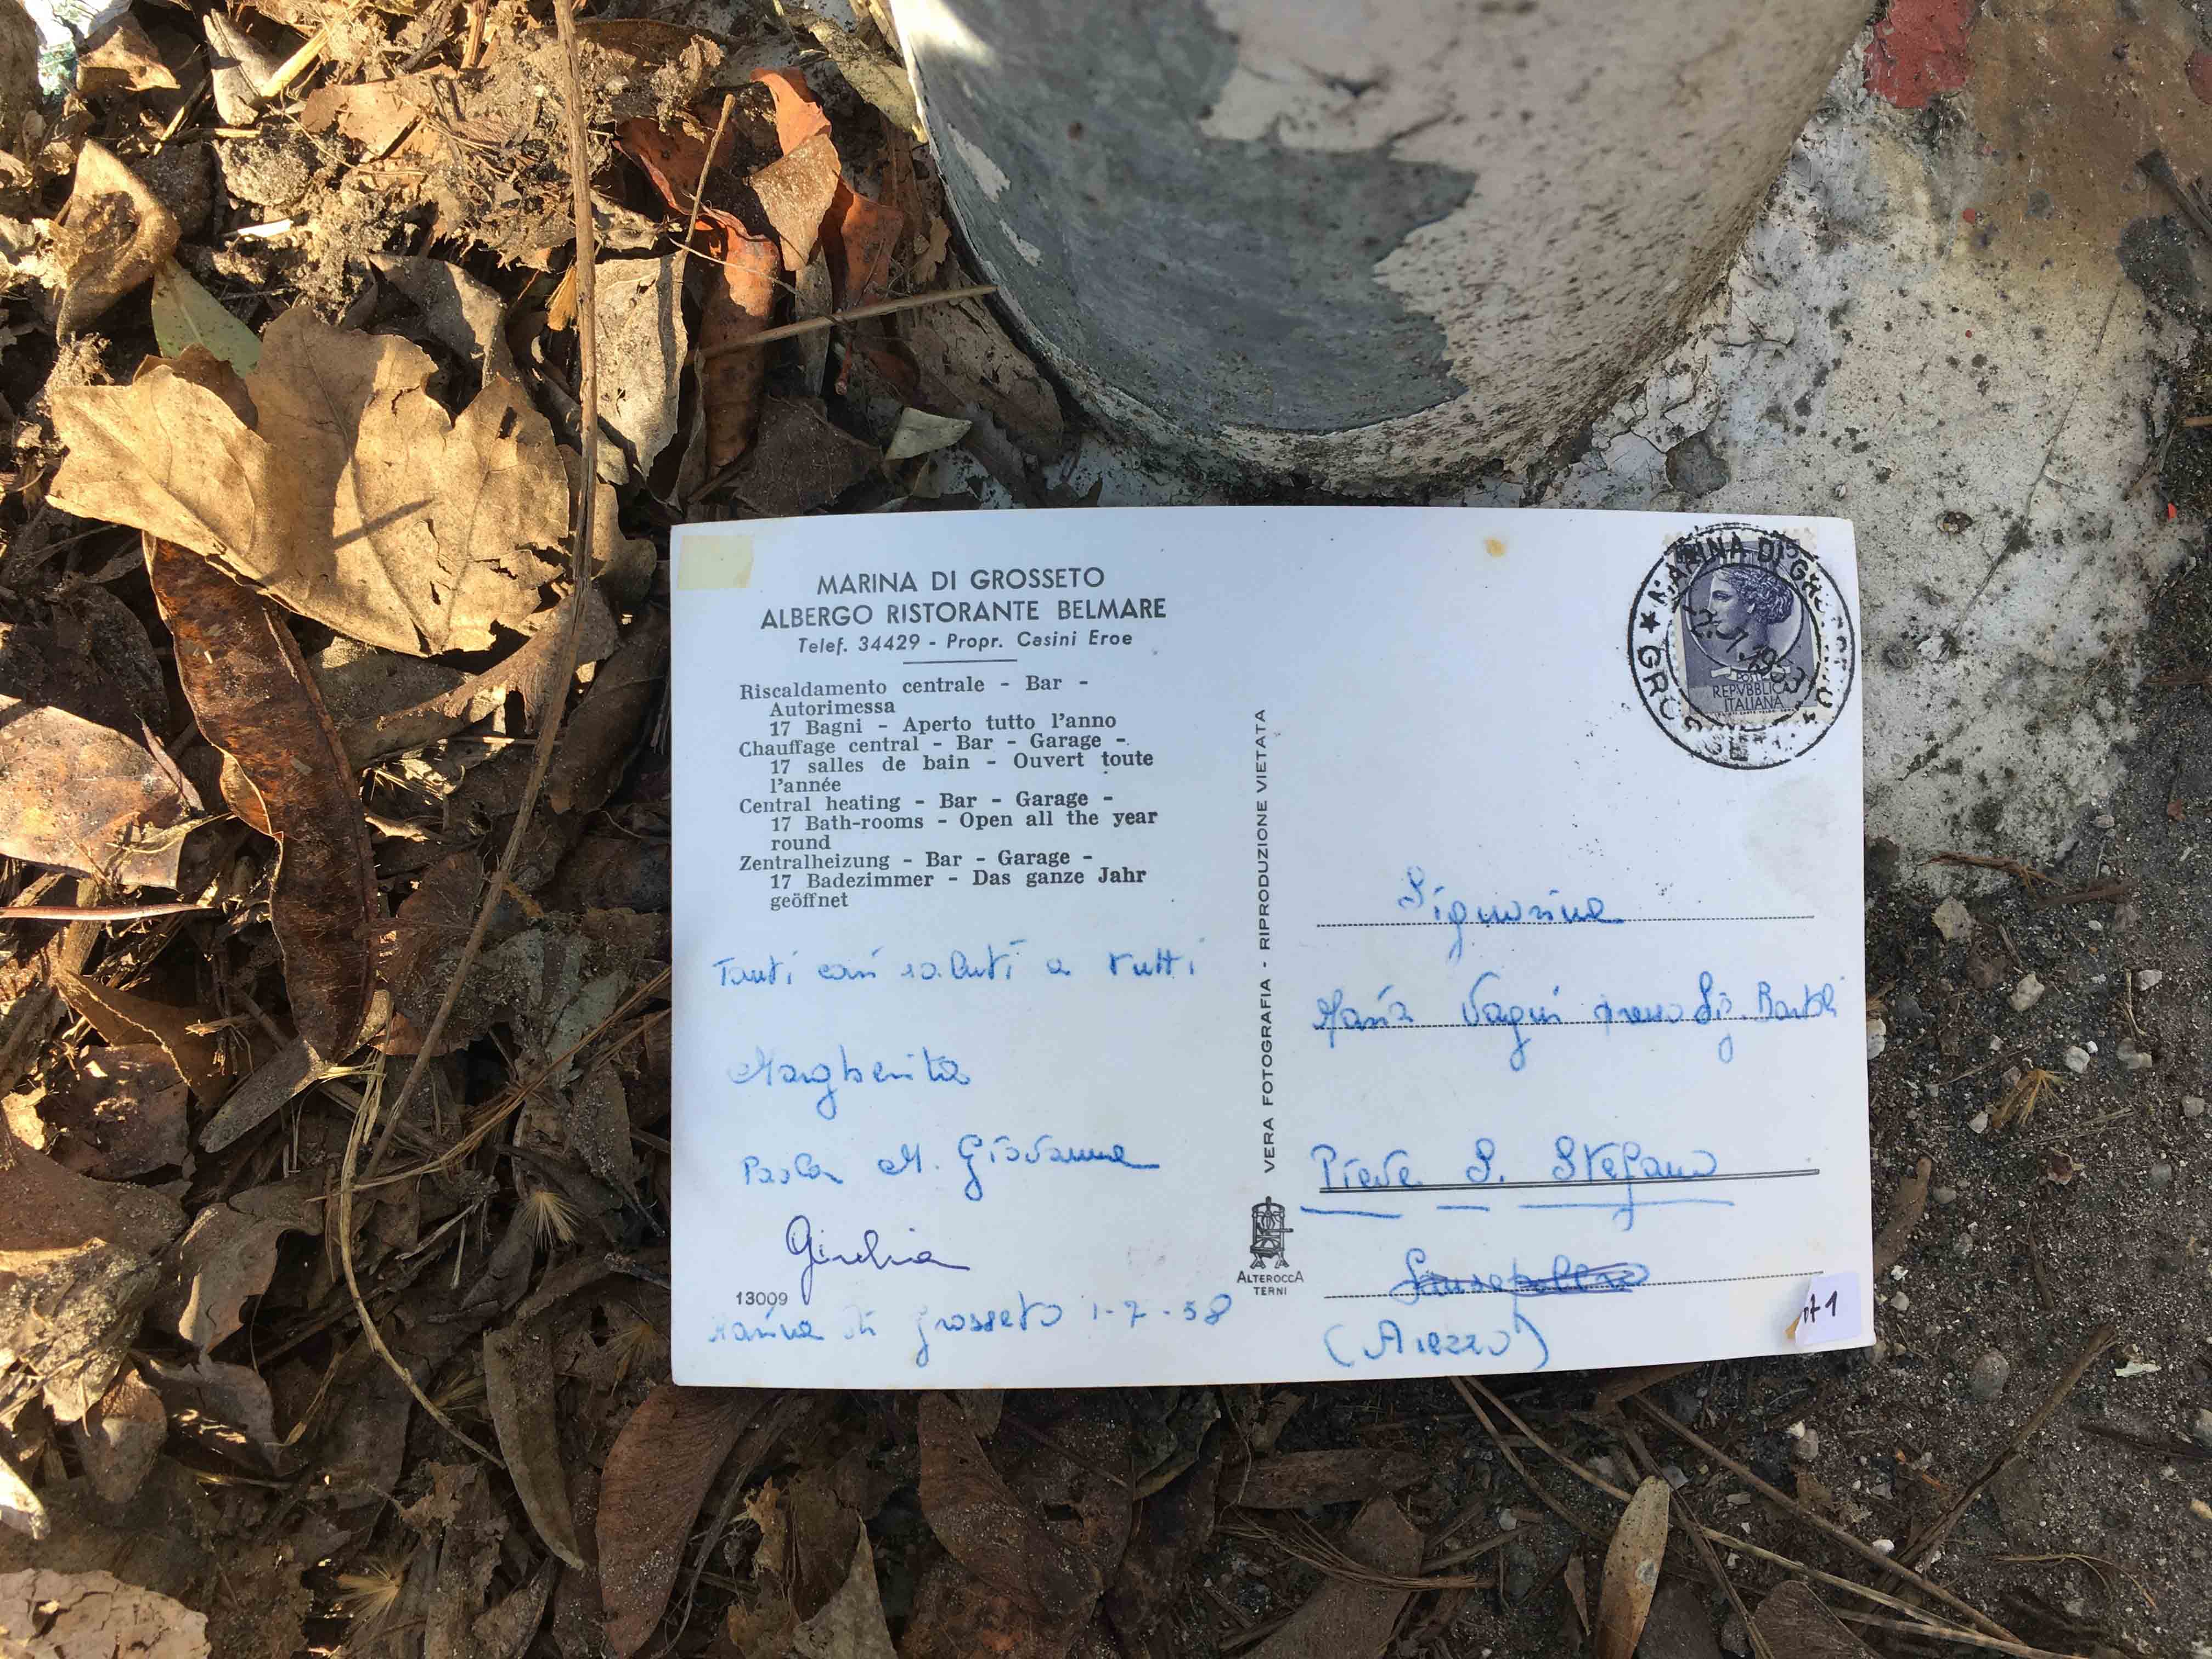 MARINA DI GROSSETO
ALBERGO RISTORANTE BELMARE
Telef. 34429 - Propr. Casini Eroe
Riscaldamento centrale - Bar -
Autorimessa
17 Bagni - Aperto tutto l'anno
Chauffage central - Bar - Garage -
17 salles de bain - Ouvert toute
l'année
Central heating - Bar - Garage -
17 Bath-rooms - Open all the year
round
Zentralheizung - Bar - Garage -
17 Badezimmer - Das ganze Jahr
geöffnet
Tanti cari saluti a tutti
Margherita
Paola M. Giovanna
Giulia
13009
Marina di Grosseto 1-7-58
VERA FOTOGRAFIA - RIPRODUZIONE VIETATA
ALTEROCCA
TERNI
MARINA DI GROSSETO
15
POSTE
REPVBBLICA
ITALIANA
Signorina
Maria Vagni presso Sig. Bartoli
Pieve S. Stefano
Sansepolcro
(Arezzo)
it 1